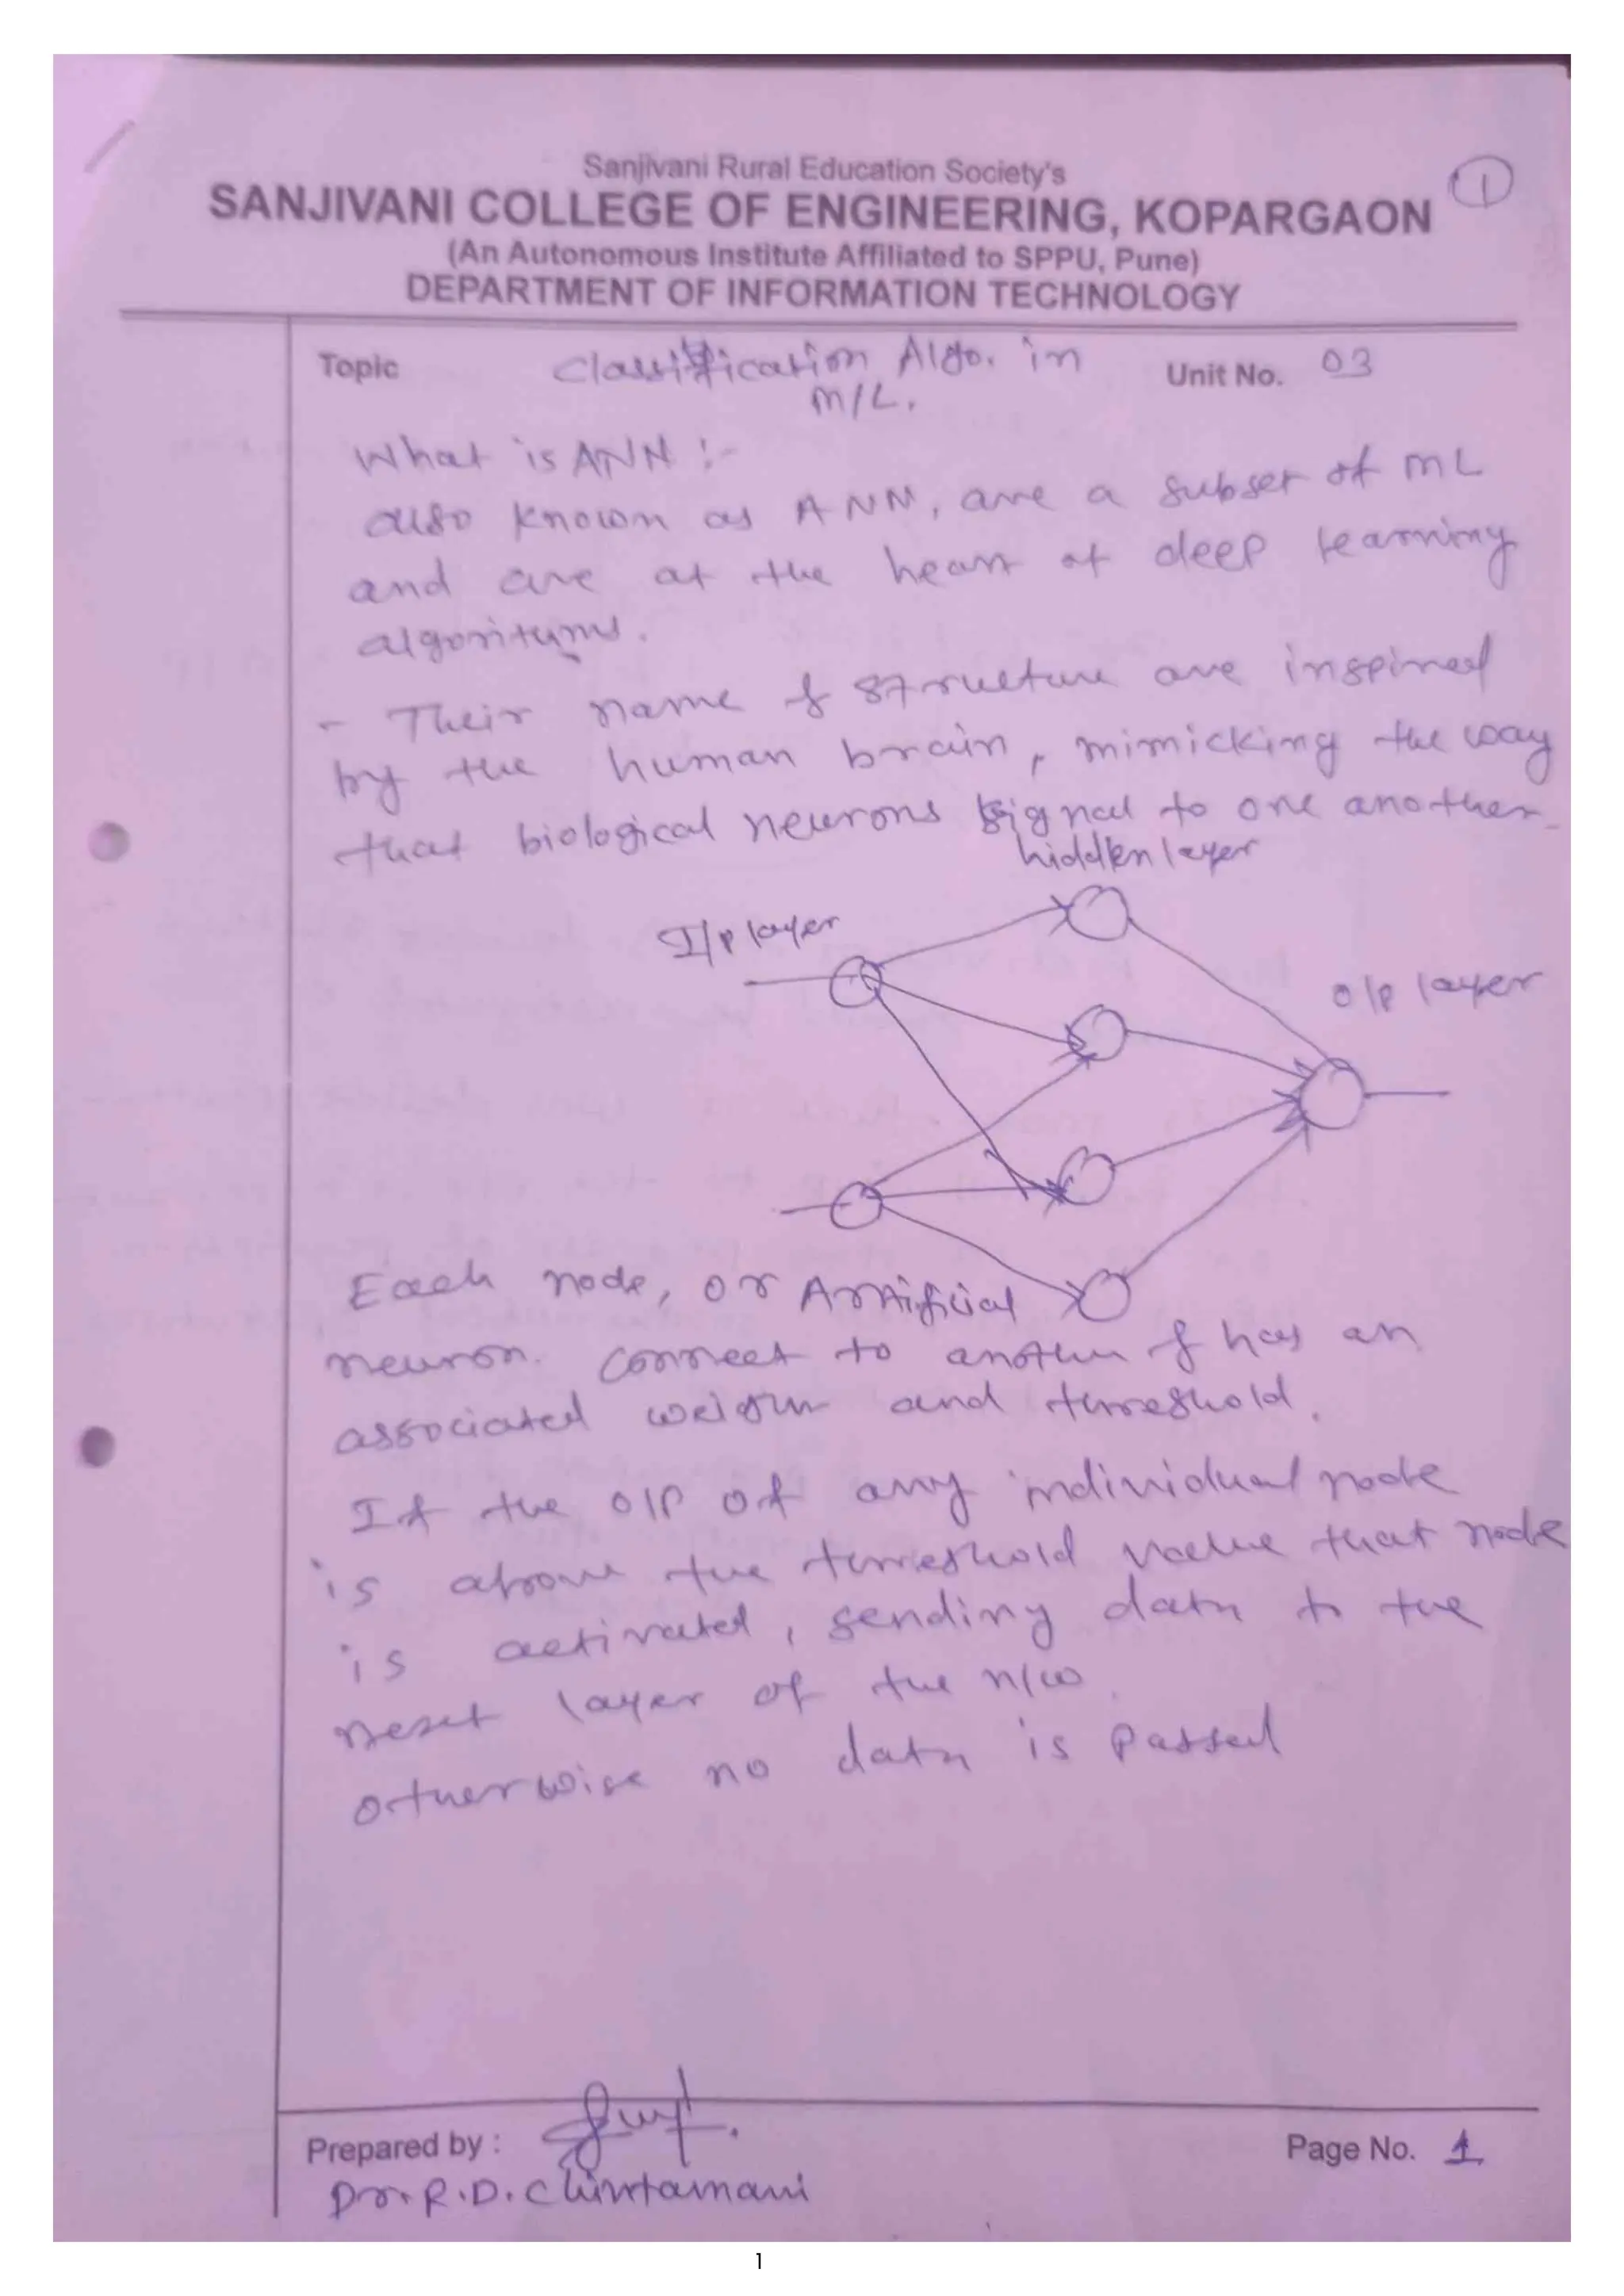 Sanjivani Rural Education Society's
SANJIVANI COLLEGE OF ENGINEERING, KOPARGAON
1
(An Autonomous Institute Affiliated to SPPU, Pune)
DEPARTMENT OF INFORMATION TECHNOLOGY
Topic Classification Algo. in Unit No. 03
M/L.
What is ANN :-
also known as ANN, are a subset of ML
and are at the heart of deep learning
algorithms.
- Their name & structure are inspired
by the human brain, mimicking the way
that biological neurons signal to one another
hidden layer
I/p layer
o/p layer
Each node, or Artificial
neuron. connect to another & has an
associated weight and threshold.
If the o/p of any individual node
is above the threshold value that node
is activated, sending data to the
next layer of the n/w.
otherwise no data is passed
Prepared by :
Page No. 1
Dr. R.D. Chintamani
1